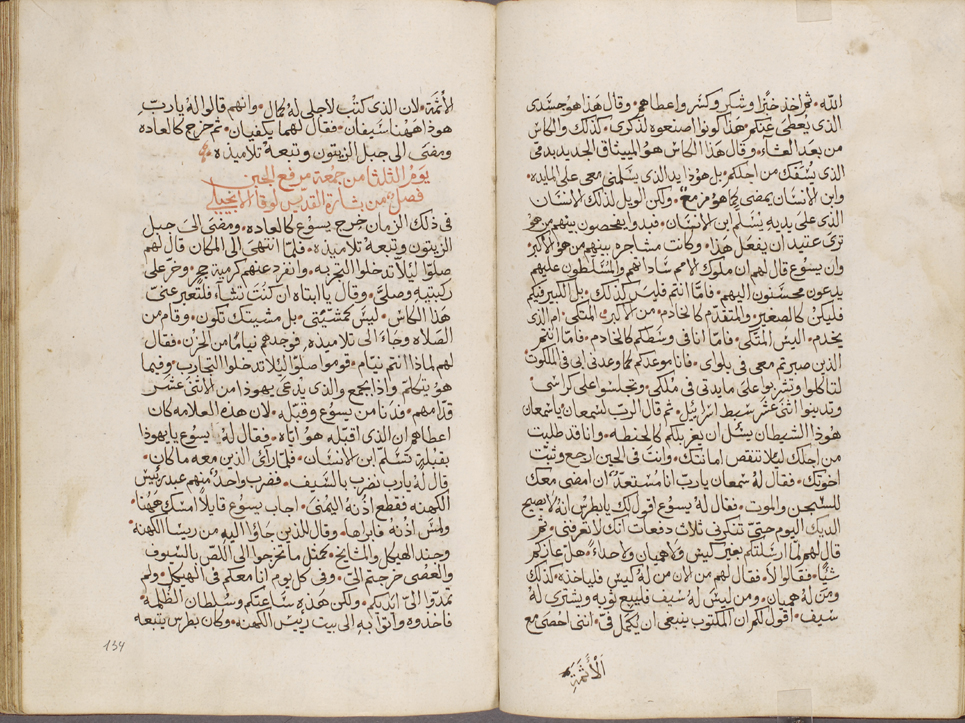 الله • ثم اخذ خبزا وشكر وكسر واعطاهم • وقال هذا هو جسدي
الذي يعطى عنكم • هذا كونوا اصنعوه لذكرى • كذلك والكاس
من بعد العشآء • وقال هذا الكاس هو الميثاق الجديد بدمي
الذي يسفك من اجلكم • بل هوذا يد الذي يسلمني معي على المايده •
وابن الانسان يمضى كما هو مزمع • ولكن الويل لذلك الانسان
الذي على يديه يسلم ابن الانسان • فبدوا يفحصون بينهم من هو
ترى عتيد ان يفعل هذا • وكانت مشاجره بينهم من هو الاكبر •
وان يسوع قال لهم ان ملوك الامم ساداتهم والمسلطون عليهم
يدعون محسنون اليهم • فامّا انتم فليس كذلك • بل الكبير فيكم
فليكن كالصغير • والمتقدم كالخادم • من الاكبر المتكى • ام الذي
يخدم • اليس المتكى • فامّا انا في وسطكم كالخادم • فامّا انتم
الذين صبرتم معي في بلواى • فانا موعدكم كما وعدني ابى في الملكوت
لتاكلوا وتشربوا على مايدتى في ملكى • وتجلسوا على كراسى
وتدينوا اثنى عشر سبط اسراييل • ثم قال الرب لسمعان ياسمعان
هوذا الشيطان يسئل ان يغربلكم كالحنطه • وانا قد طلبت
من اجلك ليلا تنقص امانتك • وانت في الحين ارجع وثبت
اخوتك • فقال له سمعان يارب انا مستعد ان امضى معك
للسجن والموت • فقال له يسوع اقول لك يابطرس انه لا يصيح
الديك اليوم حتى تنكرني ثلاث دفعات انك لا تعرفني • ثم
قال لهم لما ارسلتكم بغير كيس ولا هميان ولا حذاء • هل عازكم
شيا • فقالوا لا • فقال لهم من الان من له كيس فلياخذه • كذلك
ومن له هميان • ومن ليس له سيف فليبيع ثوبه ويشترى له
سيف • اقول لكم ان المكتوب ينبغى ان يكمل فيّ • اننى احصى مع
الأثمة
الأثمة • لان الذى كتب لاجلى له كمال • وانهم قالوا له يارب
هوذا ههنا سيفان • فقال لهما يكفيان • ثم خرج كالعاده
ومضى الى جبل الزيتون وتبعه تلاميذه •
يوم الثلثا من جمعة مرفع الجبن
فصل من بشارة القديس لوقا الانجيلى
فى ذلك الزمان خرج يسوع كالعاده • ومضى الى جبل
الزيتون وتبعه تلاميذه • فلمّا انتهى الى المكان قال لهم
صلوا ليلا تدخلوا التجربه • وانفرد عنهم كرمية حجر • وخر على
ركبتيه وصلى • وقال ياابتاه ان كنت تشآء فلتعبر عنى
هذا الكاس • ليس كمشيتى • بل مشيتك تكون • وقام من
الصلاه وجآء الى تلاميذه • فوجدهم نيامًا من الحزن • فقال
لهم لماذا انتم نيام • قوموا صلوا ليلا تدخلوا التجارب • وفيما
هو يتكلم • واذا بجمع والذى يدعى يهوذا من الاثنى عشر
قدامهم • فدنا من يسوع وقبله • لان هذه العلامه كان
اعطاهم ان الذى اقبله هو اياه • فقال له يسوع يا يهوذا
بقبلة تسلم ابن الانسان • فلما راى الذين معه ما كان •
قال له يارب نضرب بالسيف • فضرب واحد منهم عبد رئيس
الكهنه فقطع اذنه اليمنى • اجاب يسوع قايلا امسك ههنا •
ولمس اذنه فابراها • وقال للذين جاؤا اليه من ريسا الكهنه
وجند الهيكل والمشايخ • كمثل ما تخرجوا الى اللص بالسيوف
والعصى خرجتم الىّ • وفى كل يوم انا معكم فى الهيكل • ولم
تمدوا الىّ ايديكم • ولكن هذه ساعتكم وسلطان الظلمه •
فاخذوه واتوا به الى بيت رييس الكهنه • وكان بطرس يتبعه
134